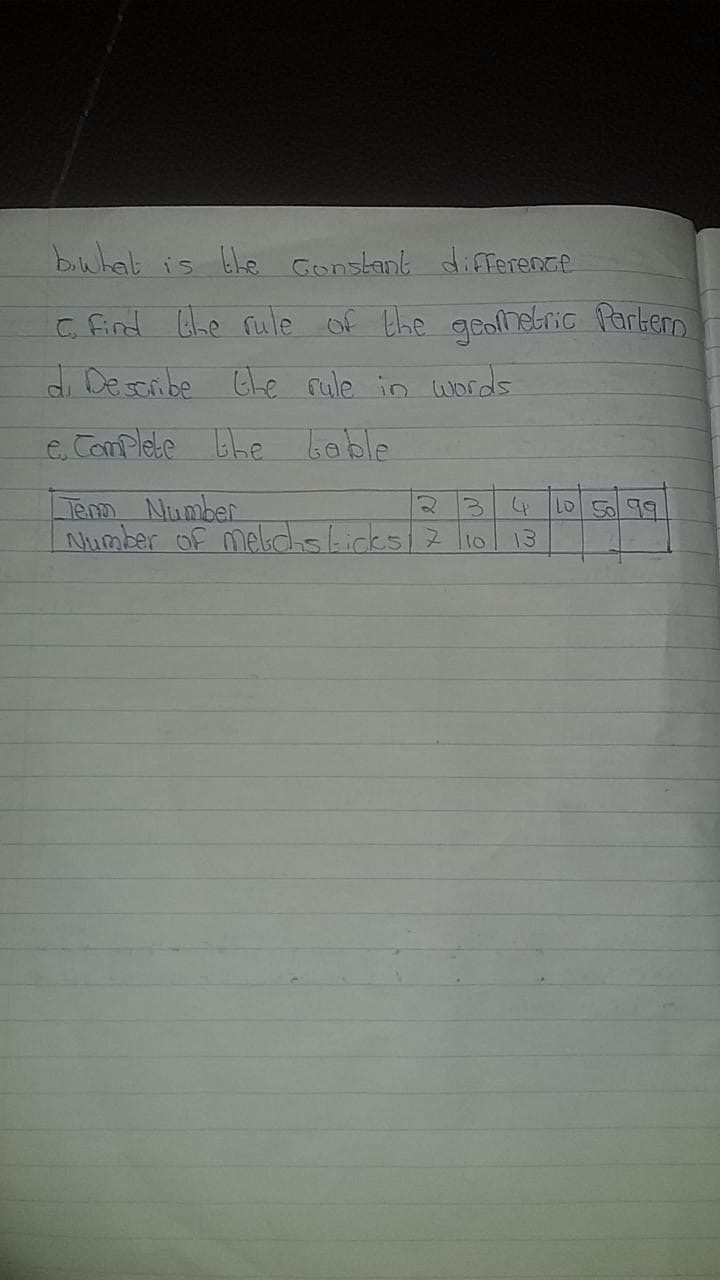 b, What is the constant difference
c, Find the rule of the geometric Partern
d, Describe the rule in words
e, Complete the table
Term Number 2 3 4 10 50 99
Number of metchsticks 7 10 13